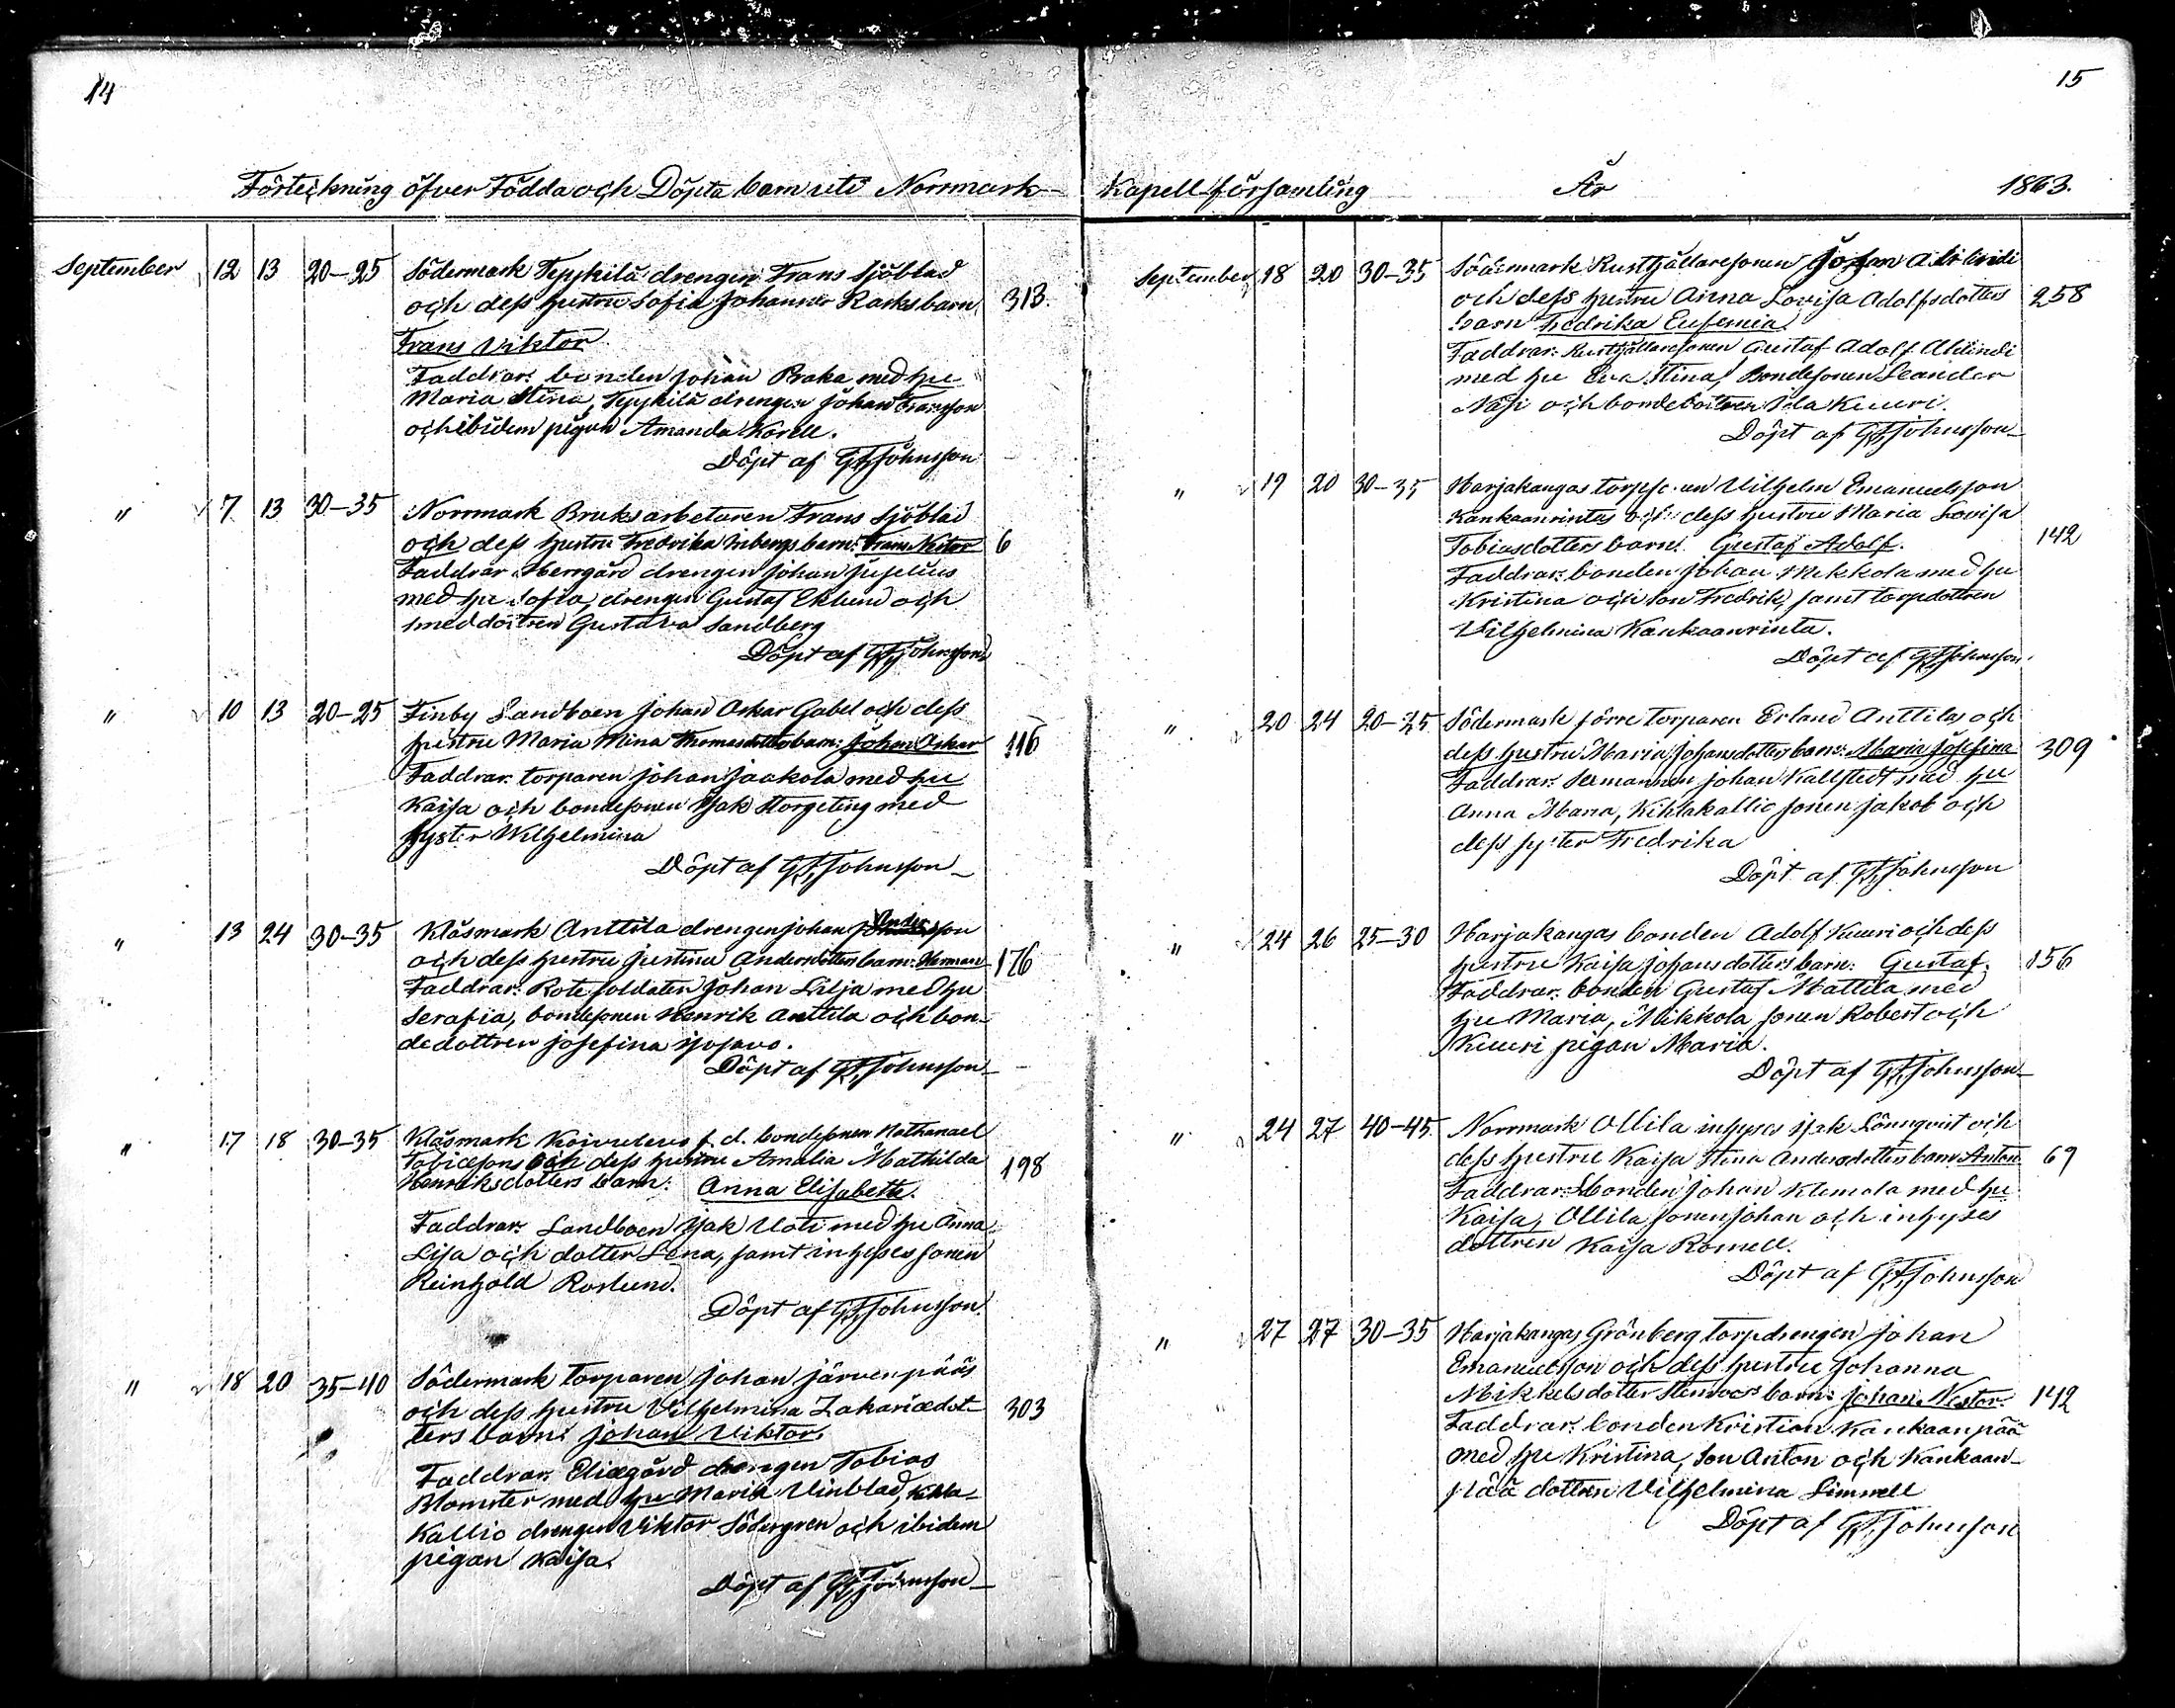 14
Förteckning öfver Födda och Döpta barn uti Norrmark
September 12 13 20-25 Södermark Tyykilä drengen Frans Sjöblad
och dess hustru Sofia Johanna Racks barn 313.
Frans Viktor.
Faddrar: bonden Johan Praka med hu
Maria Stina, Tyykilä drengen Johan Fransson
och ibidem pigan Amanda Korell.
Döpt af GFJohnsson
" 7 13 30-35 Norrmark Bruksarbetaren Frans Sjöblad
och dess hustru Fredrika barn: Frans Nestor 6
Faddrar: Herrgård drengen Johan Juselius
med hu Sofia, drengen Gustaf Eklund och
smeddottren Gustava Sandberg
Döpt af GFJohnsson
" 10 13 20-25 Finby Landboen Johan Oskar Gabel och dess
hustru Maria Mina Thomasdotters barn: Johan Oskar 116
Faddrar: torparen Johan Jaakola med hu
Kaisa och bondesonen Isak Storgeting med
syster Wilhelmina
Döpt af GFJohnsson
" 13 24 30-35 Klåsmark Anttila drengen Johan Andersson
och dess hustru Justina Andersdotters barn: Herman 176
Faddrar: Rote soldaten Johan Lilja med hu
Serafia, bondesonen Henrik Anttila och bon-
dedottren Josefina
Döpt af GFJohnsson
" 17 18 30-35 Klåsmark Koivuluus f. d. bondesonen Nathanael
Tobiæsons och dess hustru Amalia Mathilda
Henriksdotters barn: Anna Elisabeth. 198
Faddrar: Landboen Isak Uoti med hu Anna
Lisa och dotter Lena, samt inhyses sonen
Reinhold Roslund.
Döpt af GFJohnsson
" 18 20 35-40 Södermark torparen Johan Järvenpääs
och dess hustru Vilhelmina Zakariædot- 303
ters barn: Johan Viktor.
Faddrar: Eliægård drengen Tobias
Blomster med hu Maria Vinblad, Kihla-
kallio drengen Viktor Södergren och ibidem
pigan Kaisa.
Döpt af GFJohnsson
15
Kapell församling År 1863.
September 18 20 30-35 Södermark Rusthållaresonen Johan Ahlundi
och dess hustru Anna Lovisa Adolfsdotters 258
barn Fredrika Eufemia.
Faddrar: Rusthållaresonen Gustaf Adolf Ahlundi
med hu Eva Stina, Bondesonen Leander
Näsi och bondedottren Ida Kuuri.
Döpt af GFJohnsson
" 19 20 30-35 Harjakangas torpsonen Vilhelm Emanuelsson
Kankaanrintas och dess hustru Maria Lovisa
Tobiasdotters barn: Gustaf Adolf. 142
Faddrar: bonden Johan Mikkola med hu
Kristina och son Fredrik, samt torpdottren
Vilhelmina Kankaanrinta.
Döpt af GFJohnsson
" 20 24 20-25 Södermark förre torparen Erland Anttilas och
dess hustru Maria Johansdotters barn: Maria Josefina 309
Faddrar: Seemannen Johan Kallstedt med hu
Anna Maria, Kihlakallio sonen Jakob och
dess syster Fredrika
Döpt af GFJohnsson
" 24 26 25-30 Harjakangas bonden Adolf Kuuri och dess
hustru Kaisa Johansdotters barn: Gustaf. 156
Faddrar: bonden Gustaf Mattila med
hu Maria, Mikkola sonen Robert och
Kuuri pigan Maria.
Döpt af GFJohnsson
" 24 27 40-45. Norrmark Ollila inhyses Isak Lönnqvist och
dess hustru Kaisa Stina Andersdotters barn: Anton 69
Faddrar: bonden Johan Klemola med hu
Kaisa, Ollila sonen Johan och inhyses
dottren Kaisa Romell.
Döpt af GFJohnsson
" 27 27 30-35 Harjakangas Grönberg torpdrengen Johan
Emanuelsson och dess hustru Johanna
Mikkelsdotter Stenroos barn: Johan Nestor. 142
Faddrar: bonden Kristian Kankaanpää
med hu Kristina, son Anton och Kankaan-
pää dottren Vilhelmina Limnell
Döpt af GFJohnsson